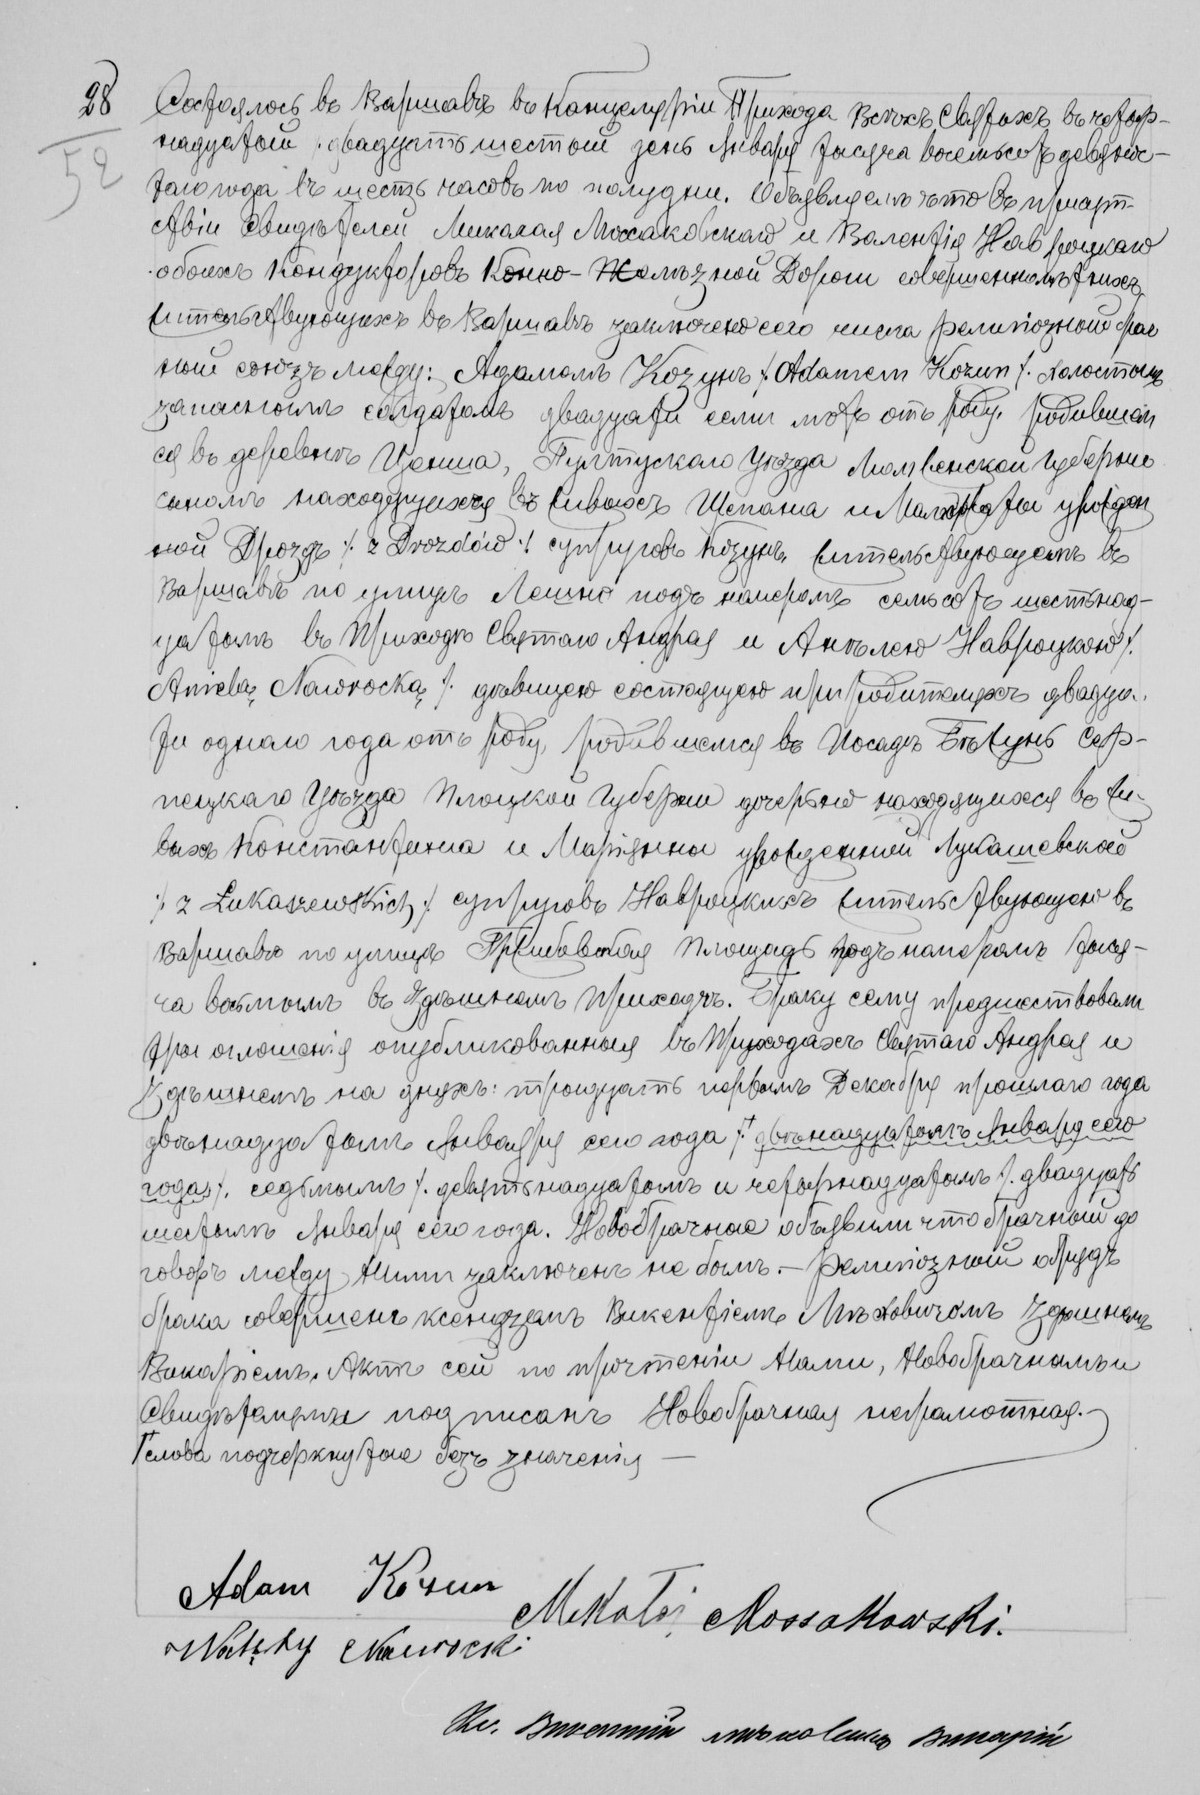 28
52
Состоялось въ Варшавѣ въ Канцеляріи Прихода Всѣхъ Святыхъ въ четыр-
надцатый /двадцать шестый день Января тысяча восемьсотъ девянос-
таго года въ шесть часовъ по полудни. Объявляемъ что въ присут-
ствіи Свидѣтелей Миколая Мосаковскаго и Валентія Навроцкаго
обоихъ Кондукторовъ Конно-Желѣзной Дороги совершеннолѣтнихъ,
жительствующихъ въ Варшавѣ заключенъ сего числа религіозный брач
ный союзъ между: Адамомъ Козунъ /:Adamem Kozun/: холостымъ
запаснымъ солдатомъ двадцати семи лѣтъ отъ роду, родившим
ся въ деревнѣ Цѣпша, Пултускаго Уѣзда Ломженской Губерніи
сыномъ находящихся въ живыхъ Щепана и Малгоржаты урожден
ной Дроздъ /: z Drozdów :/ супруговъ Козунъ, жительствующемъ въ
Варшавѣ по улицѣ Лешно подъ номеромъ семьсотъ шестьнад-
цатымъ въ Приходѣ Святаго Андрея и Анѣлею Навроцкою /:
Anielą Nawrocką /: дѣвицею состоящею при родителяхъ двадца-
ти одного года отъ роду, родившеюся въ Посадѣ Бѣжунь Серп-
пецкаго Уѣзда Плоцкой Губерніи дочерью находящихся въ жи-
выхъ Константина и Маріянны урожденной Лукашевской
/: z Łukaszewskich :/ супруговъ Навроцкихъ жительствующею въ
Варшавѣ по улицѣ Гржибовская Площадь подъ номеромъ тыся-
ча восмымъ въ здѣшнемъ Приходѣ. Браку сему предшествовали
три оглошенія опубликованныя въ Приходахъ Святаго Андрея и
Здѣшнемъ на дняхъ: тридцать первымъ Декабря прошлаго года
двѣнадцатымъ Января сего года /: двѣнадцатымъ Января сего
года /: седьмымъ /: девятьнадцатымъ и четырнадцатымъ /: двадцать
шестымъ Января сего года. Новобрачные объявили что брачный до
говоръ между ними заключенъ не былъ. – Религіозный обрядъ
брака совершенъ ксендземъ Викентіемъ Мѣховичомъ Здѣшнемъ
Викаріемъ. Актъ сей по прочтеніи Нами, Новобрачнымъ и
Свидѣтелями подписанъ Новобрачная неграмотная.
слова подчеркнутые безъ значенія –
Adam Kozun
Mikołaj Mossakowski.
Walęty Nawrocki
Кс. Викентій Викарій